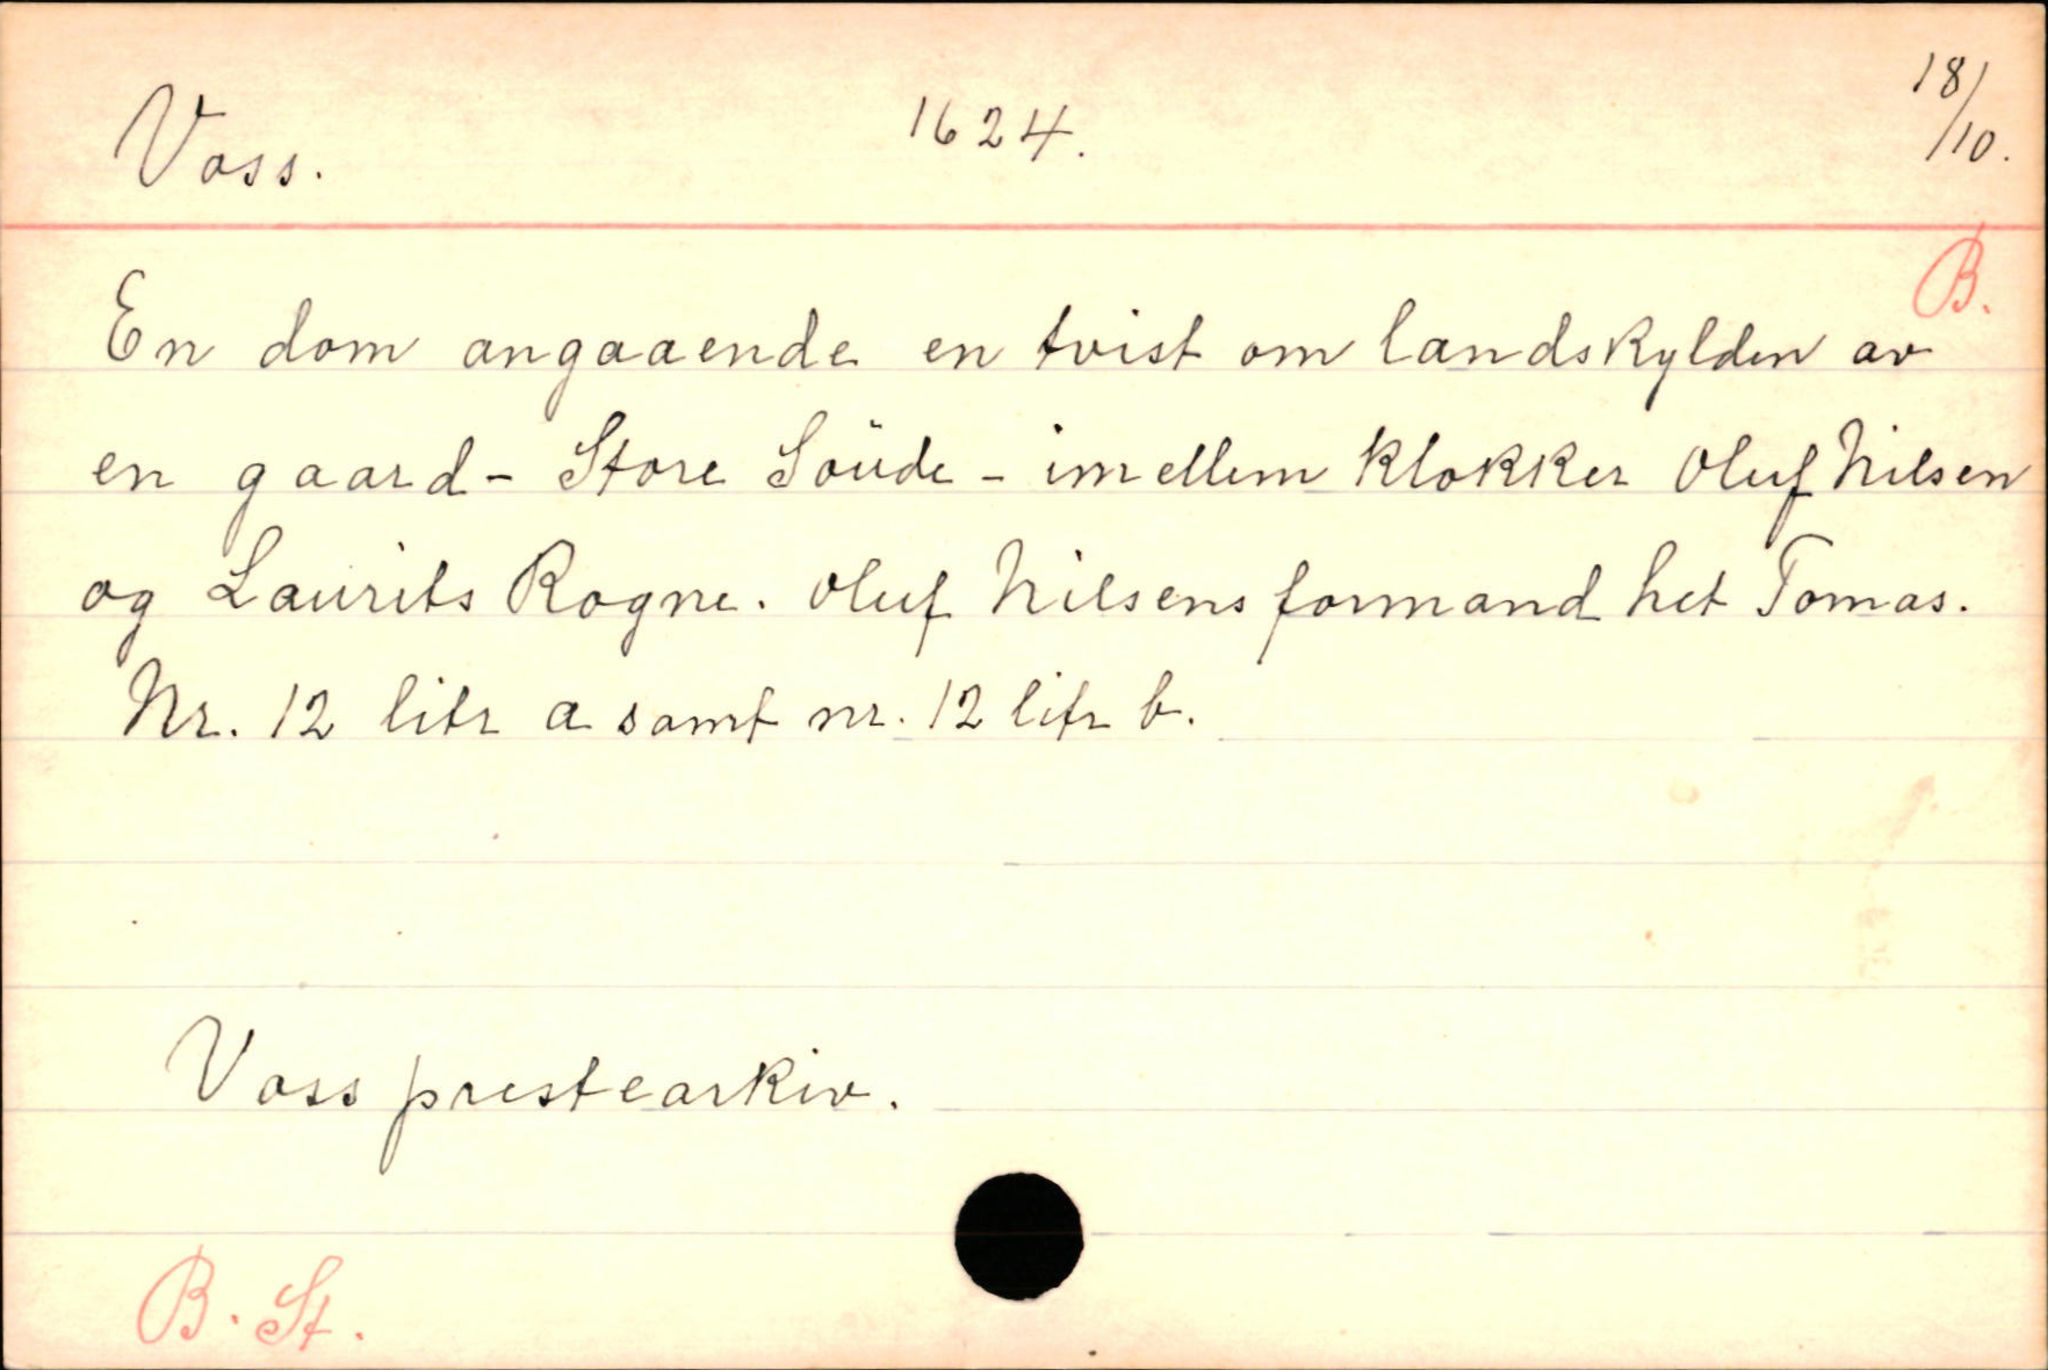 Voss. 1624. 18/10.
B.
En dom angaaende en tvist om landskylden av
en gaard - Store Soüde - imellem klokker Oluf Nilsen
og Laurits Rogne. Oluf Nilsens formand het Tomas.
Nr. 12 litr a samt nr. 12 litr b.
Voss prestearkiv.
B. St.